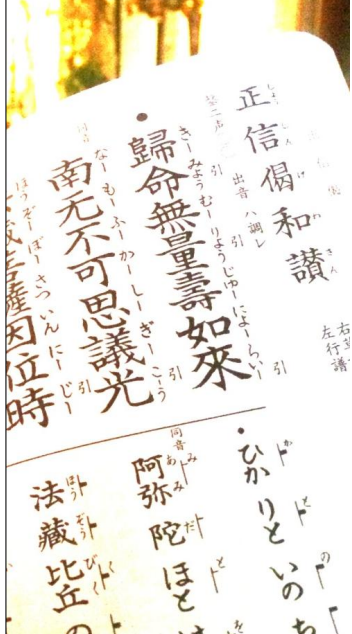 正信偈和讃
しょうしんげわさん
右
左行譜
出音ハ調レ
引
引
歸命無量壽如來
きーみょうむーりょうじゅーにょーらいー
引
同音
南无不可思議光
なーもーふーかーしーぎーこーう
引
引
菩薩因位時
ほうぞーぼーさついんにーじー
ひかりといのち
かとの
同音
阿弥陀ほと
あみだ
みと
法藏比丘の
ほうぞうびく